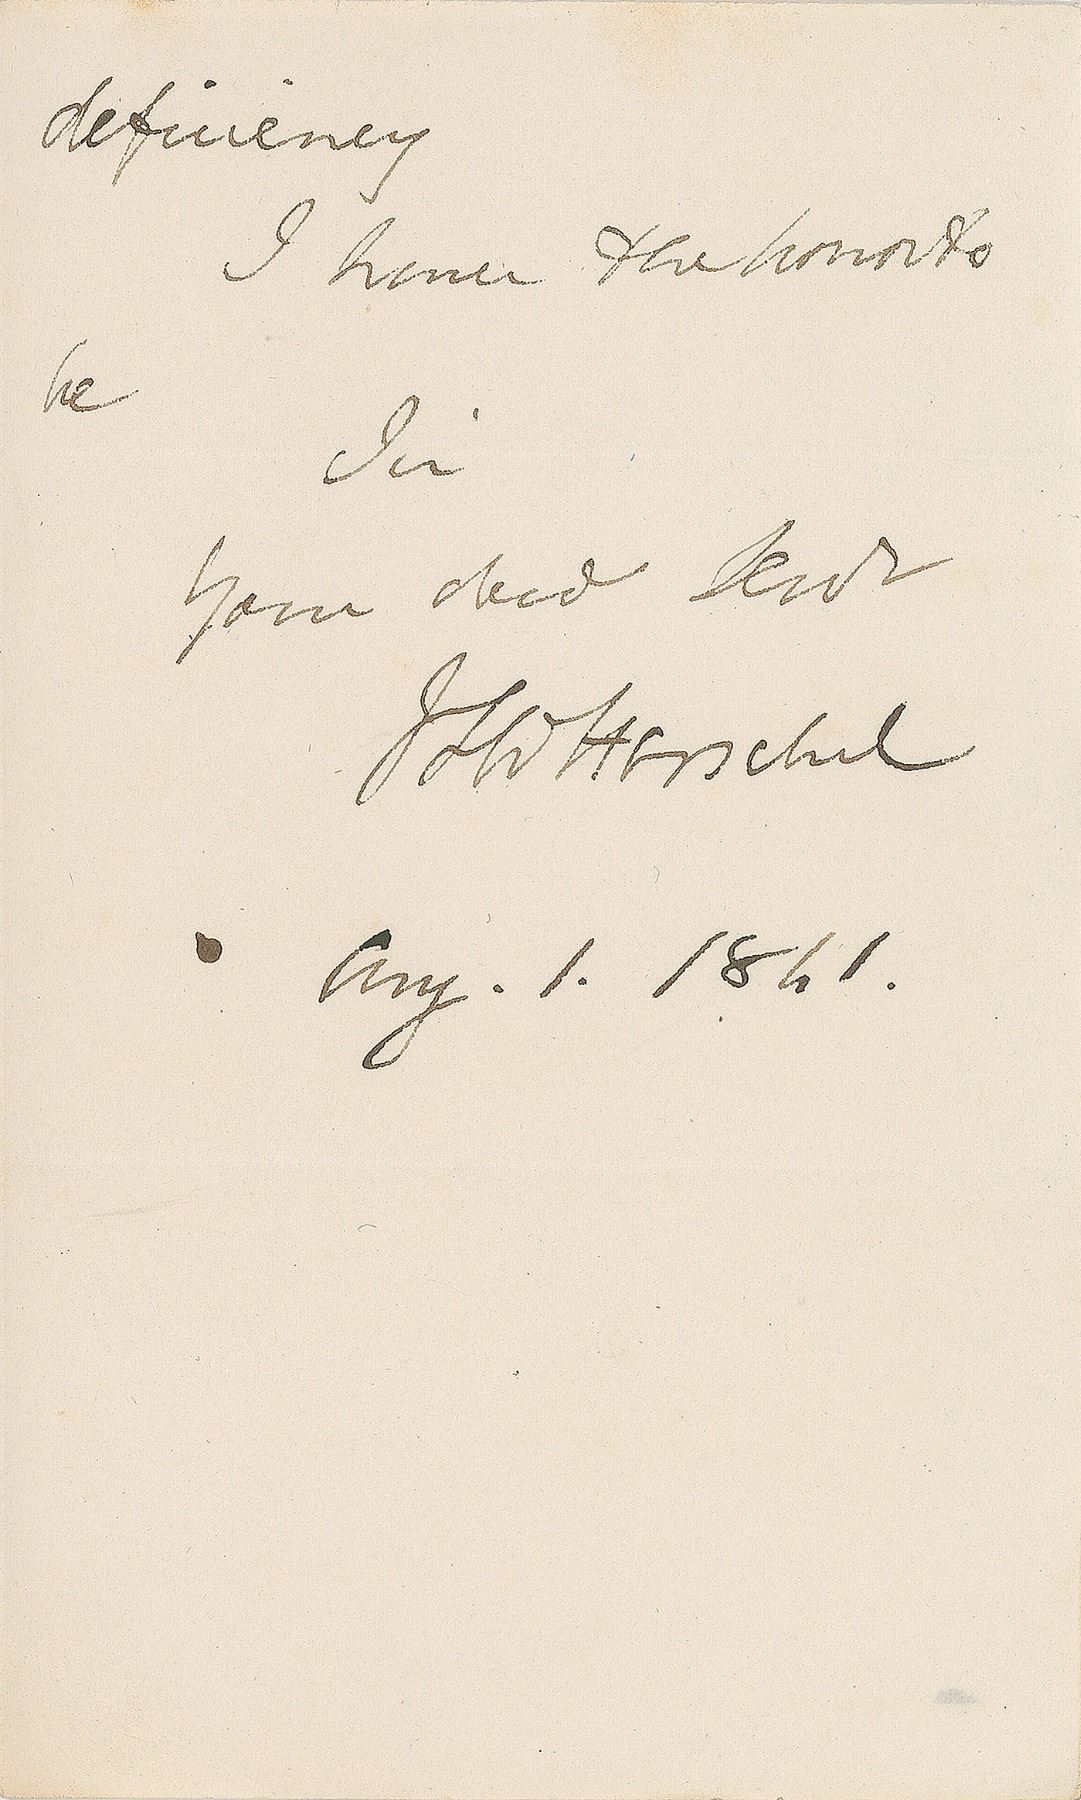 deficiency
I have the honor to
be
Sir
Your obed Servt
JFW Herschel
Aug. 1. 1861.